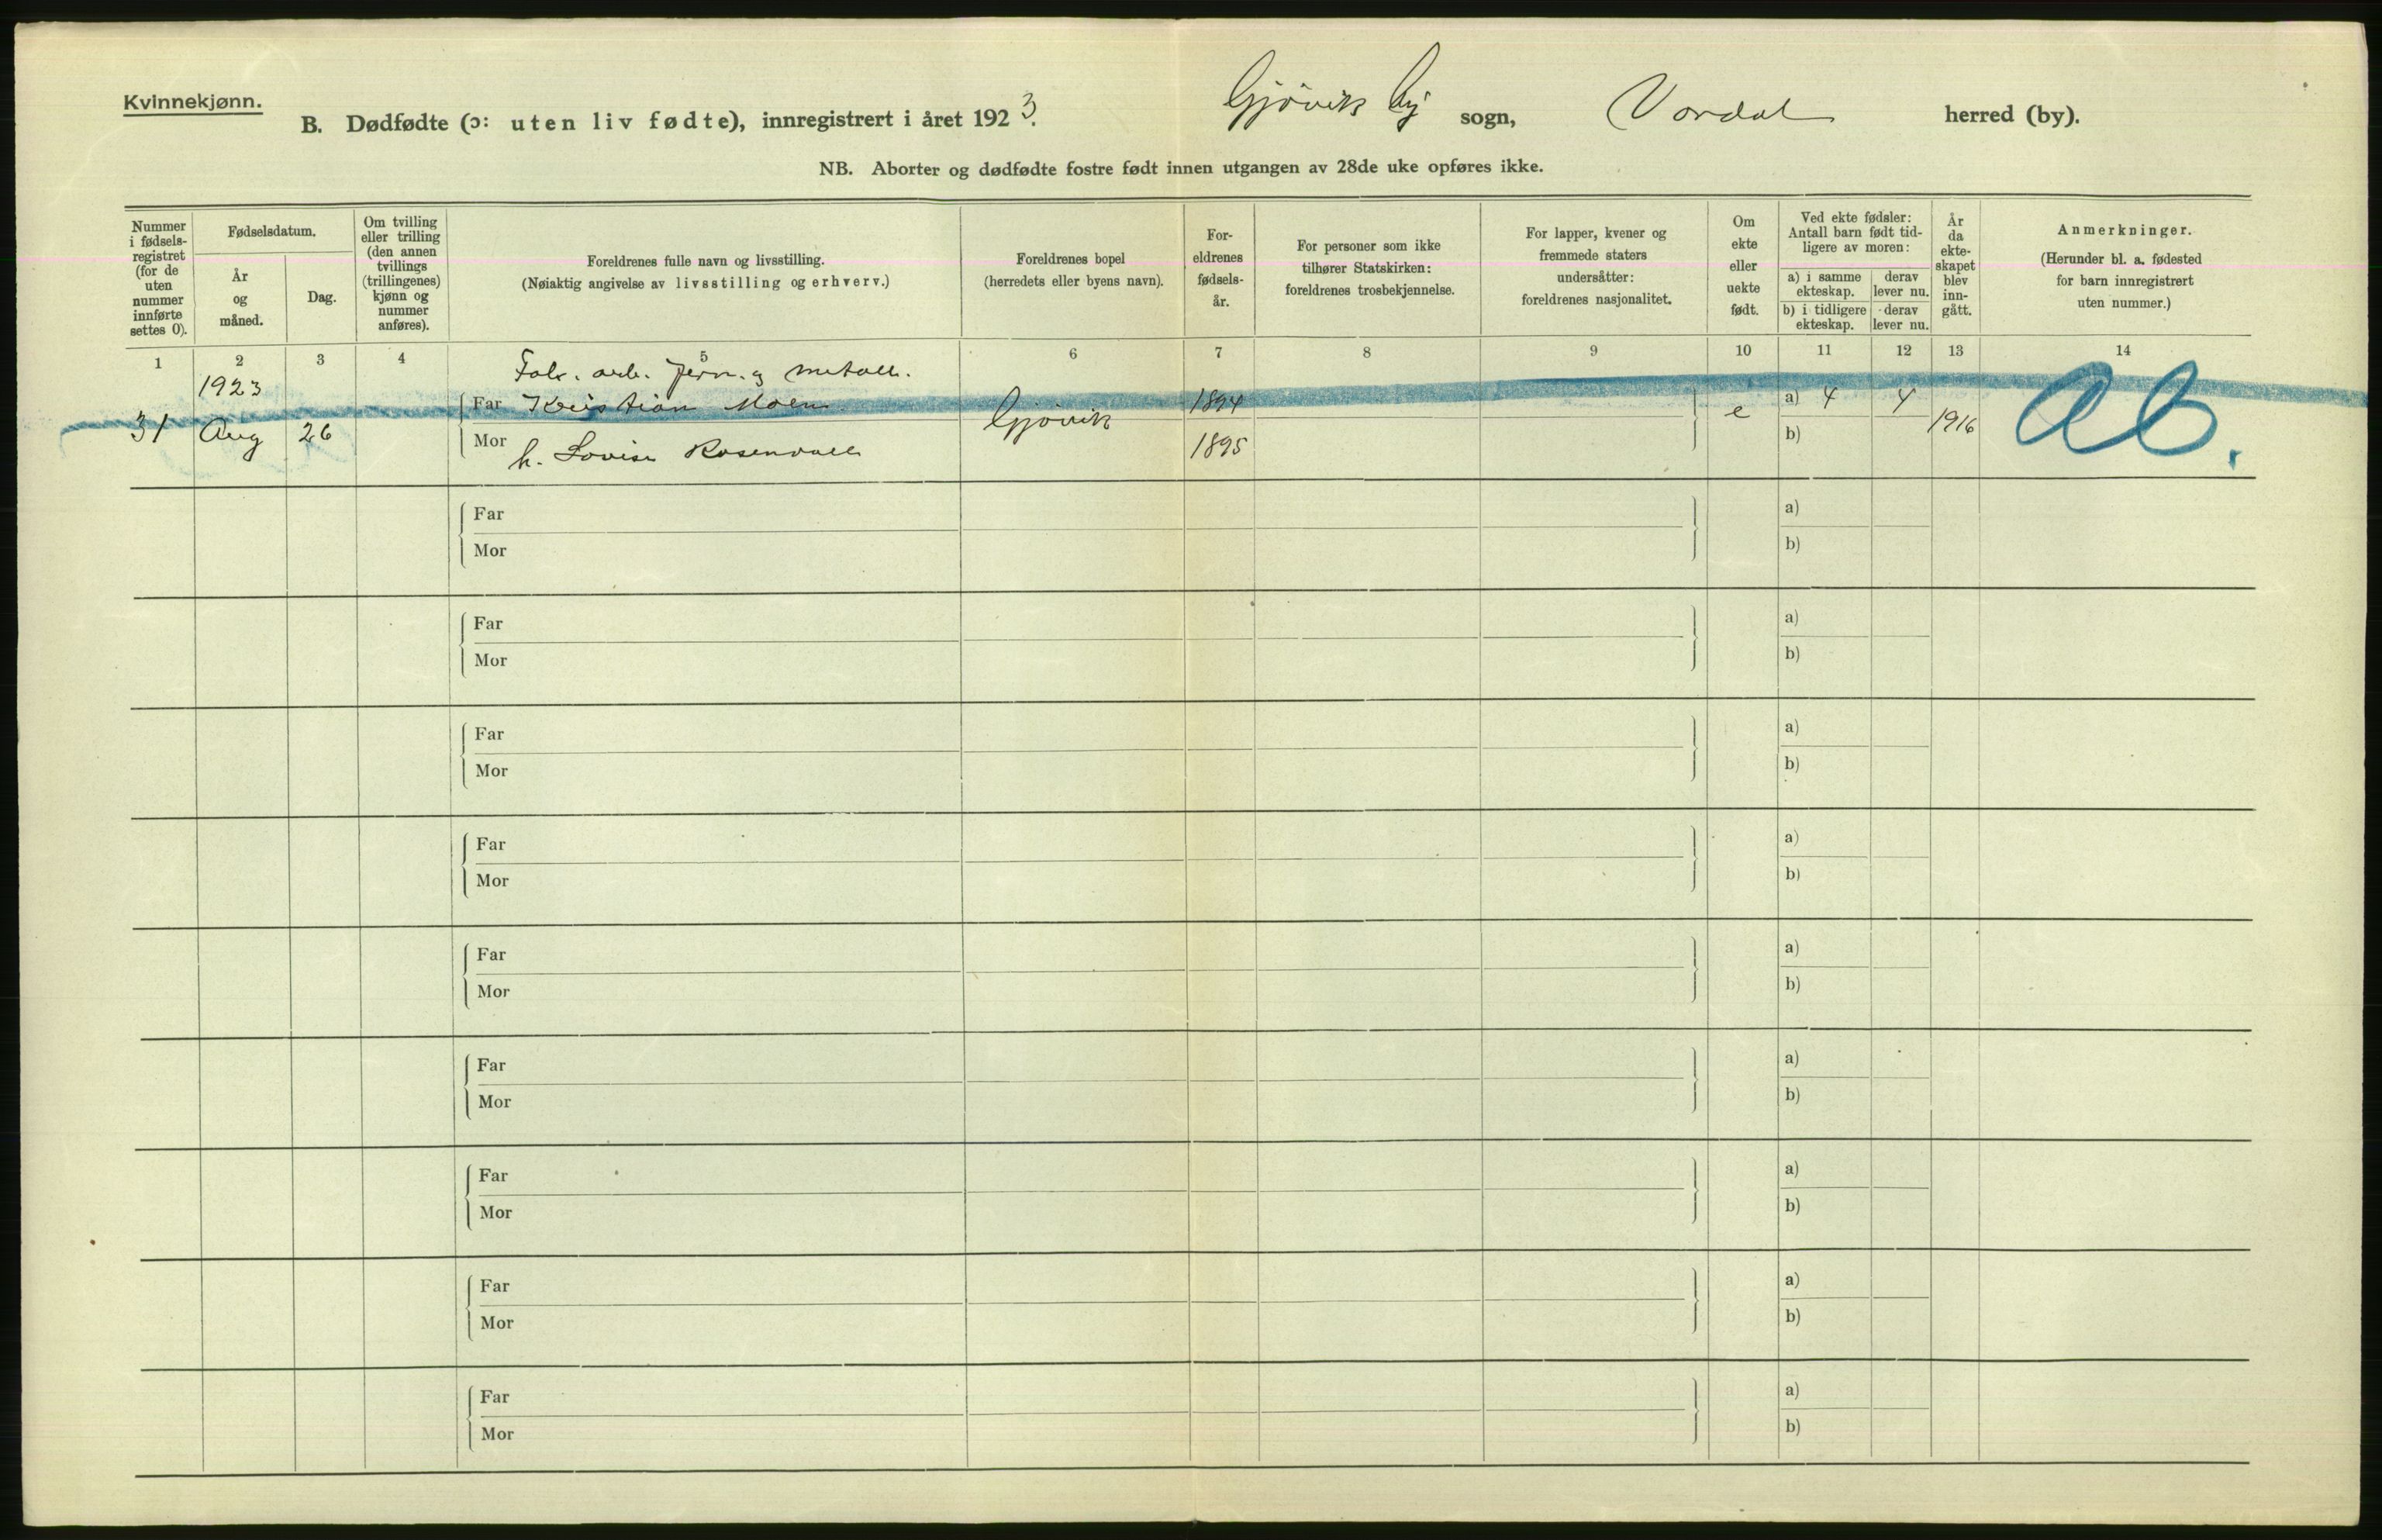 Kvinnekjønn.
B. Dødfødte (ɔ: uten liv fødte), innregistrert i året 1923. Gjövik by sogn, Vardal herred (by).
NB. Aborter og dødfødte fostre født innen utgangen av 28de uke opføres ikke.
Nummer i fødsels-registret (for de uten nummer innførte settes 0).
Fødselsdatum.
År og måned.
Dag.
Om tvilling eller trilling (den annen tvillings (trillingenes) kjønn og nummer anføres).
Foreldrenes fulle navn og livsstilling.
(Nøiaktig angivelse av livsstilling og erhverv.)
Foreldrenes bopel
(herredets eller byens navn).
For-eldrenes fødsels-år.
For personer som ikke tilhører Statskirken: foreldrenes trosbekjennelse.
For lapper, kvener og fremmede staters undersåtter: foreldrenes nasjonalitet.
Om ekte eller uekte født.
Ved ekte fødsler: Antall barn født tid-ligere av moren:
a) i samme ekteskap.
derav lever nu.
b) i tidligere ekteskap.
derav lever nu.
År da ekte-skapet blev inn-gått.
Anmerkninger.
(Herunder bl. a. fødested for barn innregistrert uten nummer.)
1 2 3 4 5 6 7 8 9 10 11 12 13 14
Fabr. arb. jern. og metall.
1923
Far Kristian Moen 1894 a) 4 4
31 Aug 26 Gjövik e 1916 Ab.
Mor h. Lovise Rosenvall 1895 b)
Far a)
Mor b)
Far a)
Mor b)
Far a)
Mor b)
Far a)
Mor b)
Far a)
Mor b)
Far a)
Mor b)
Far a)
Mor b)
Far a)
Mor b)
Far a)
Mor b)